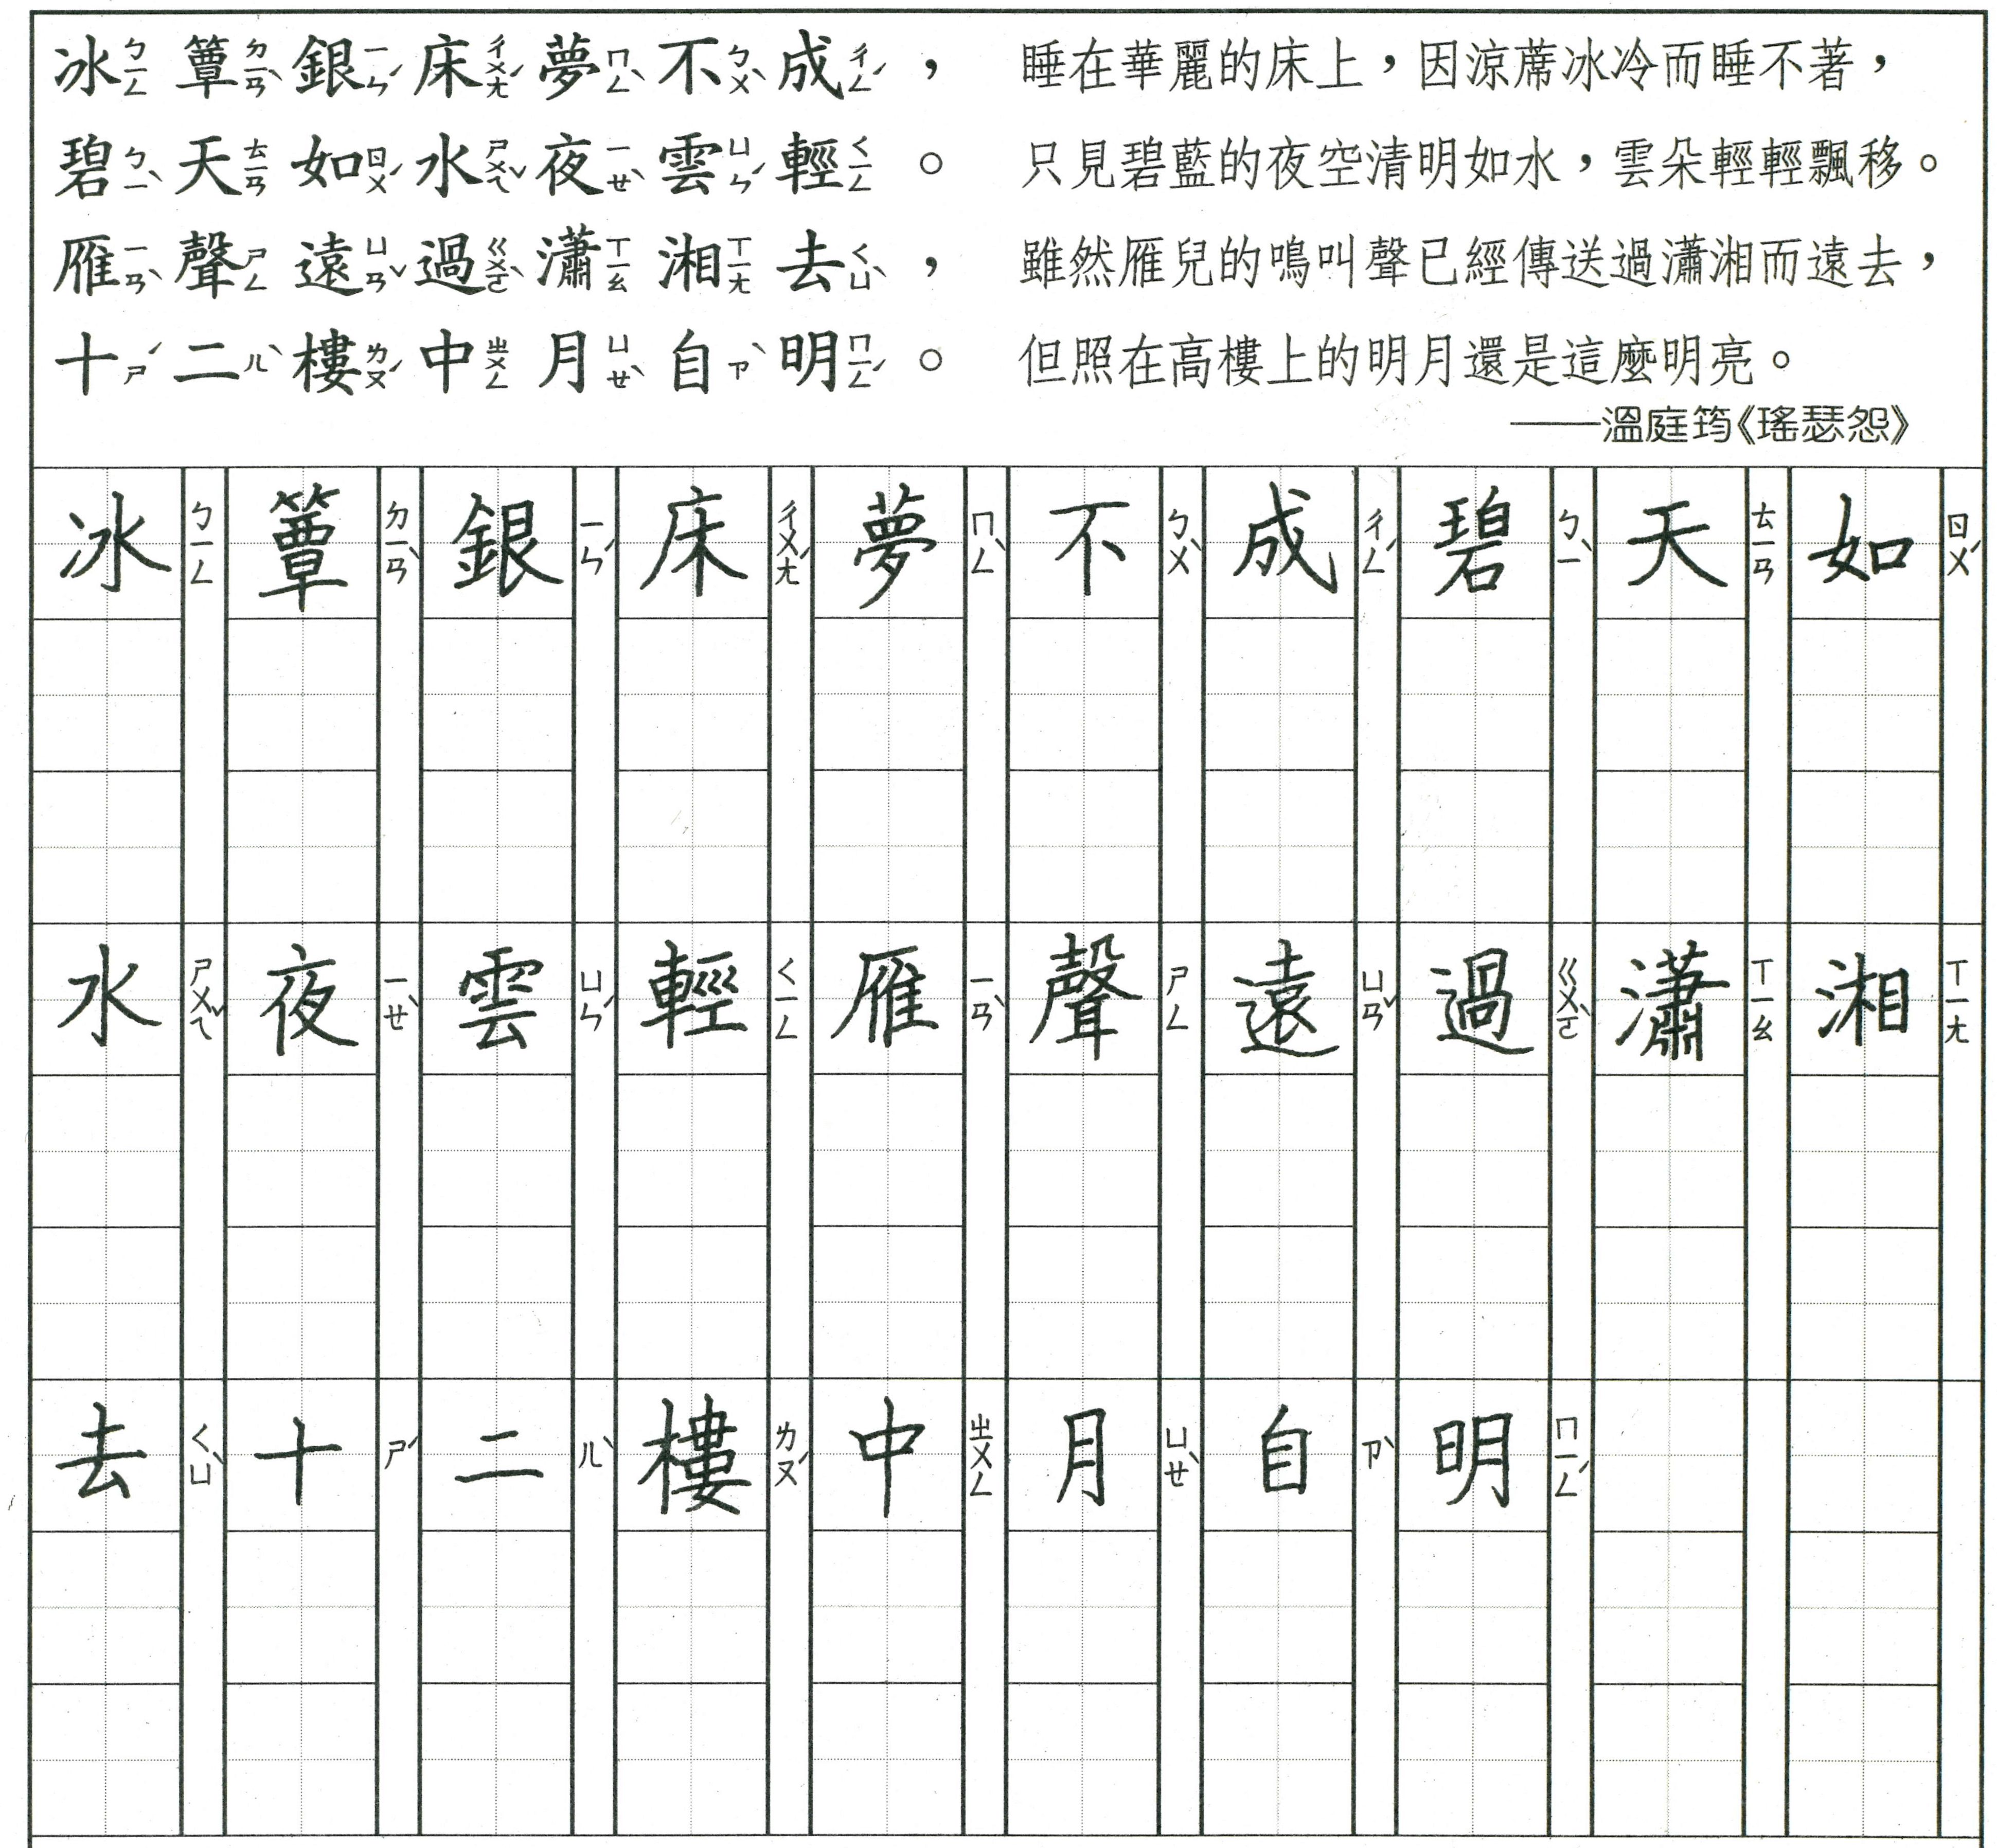 冰ㄅㄧㄥ簟ㄉㄧㄢˋ銀ㄧㄣˊ床ㄔㄨㄤˊ夢ㄇㄥˋ不ㄅㄨˋ成ㄔㄥˊ， 睡在華麗的床上，因涼蓆冰冷而睡不著，
碧ㄅㄧˋ天ㄊㄧㄢ如ㄖㄨˊ水ㄕㄨㄟˇ夜ㄧㄝˋ雲ㄩㄣˊ輕ㄑㄧㄥ。 只見碧藍的夜空清明如水，雲朵輕輕飄移。
雁ㄧㄢˋ聲ㄕㄥ遠ㄩㄢˇ過ㄍㄨㄛˋ瀟ㄒㄧㄠ湘ㄒㄧㄤ去ㄑㄩˋ， 雖然雁兒的鳴叫聲已經傳送過瀟湘而遠去，
十ㄕˊ二ㄦˋ樓ㄌㄡˊ中ㄓㄨㄥ月ㄩㄝˋ自ㄗˋ明ㄇㄧㄥˊ。 但照在高樓上的明月還是這麼明亮。
——溫庭筠《瑤瑟怨》
冰ㄅㄧㄥ簟ㄉㄧㄢˋ銀ㄧㄣˊ床ㄔㄨㄤˊ夢ㄇㄥˋ不ㄅㄨˋ成ㄔㄥˊ碧ㄅㄧˋ天ㄊㄧㄢ如ㄖㄨˊ
水ㄕㄨㄟˇ夜ㄧㄝˋ雲ㄩㄣˊ輕ㄑㄧㄥ雁ㄧㄢˋ聲ㄕㄥ遠ㄩㄢˇ過ㄍㄨㄛˋ瀟ㄒㄧㄠ湘ㄒㄧㄤ
去ㄑㄩˋ十ㄕˊ二ㄦˋ樓ㄌㄡˊ中ㄓㄨㄥ月ㄩㄝˋ自ㄗˋ明ㄇㄧㄥˊ